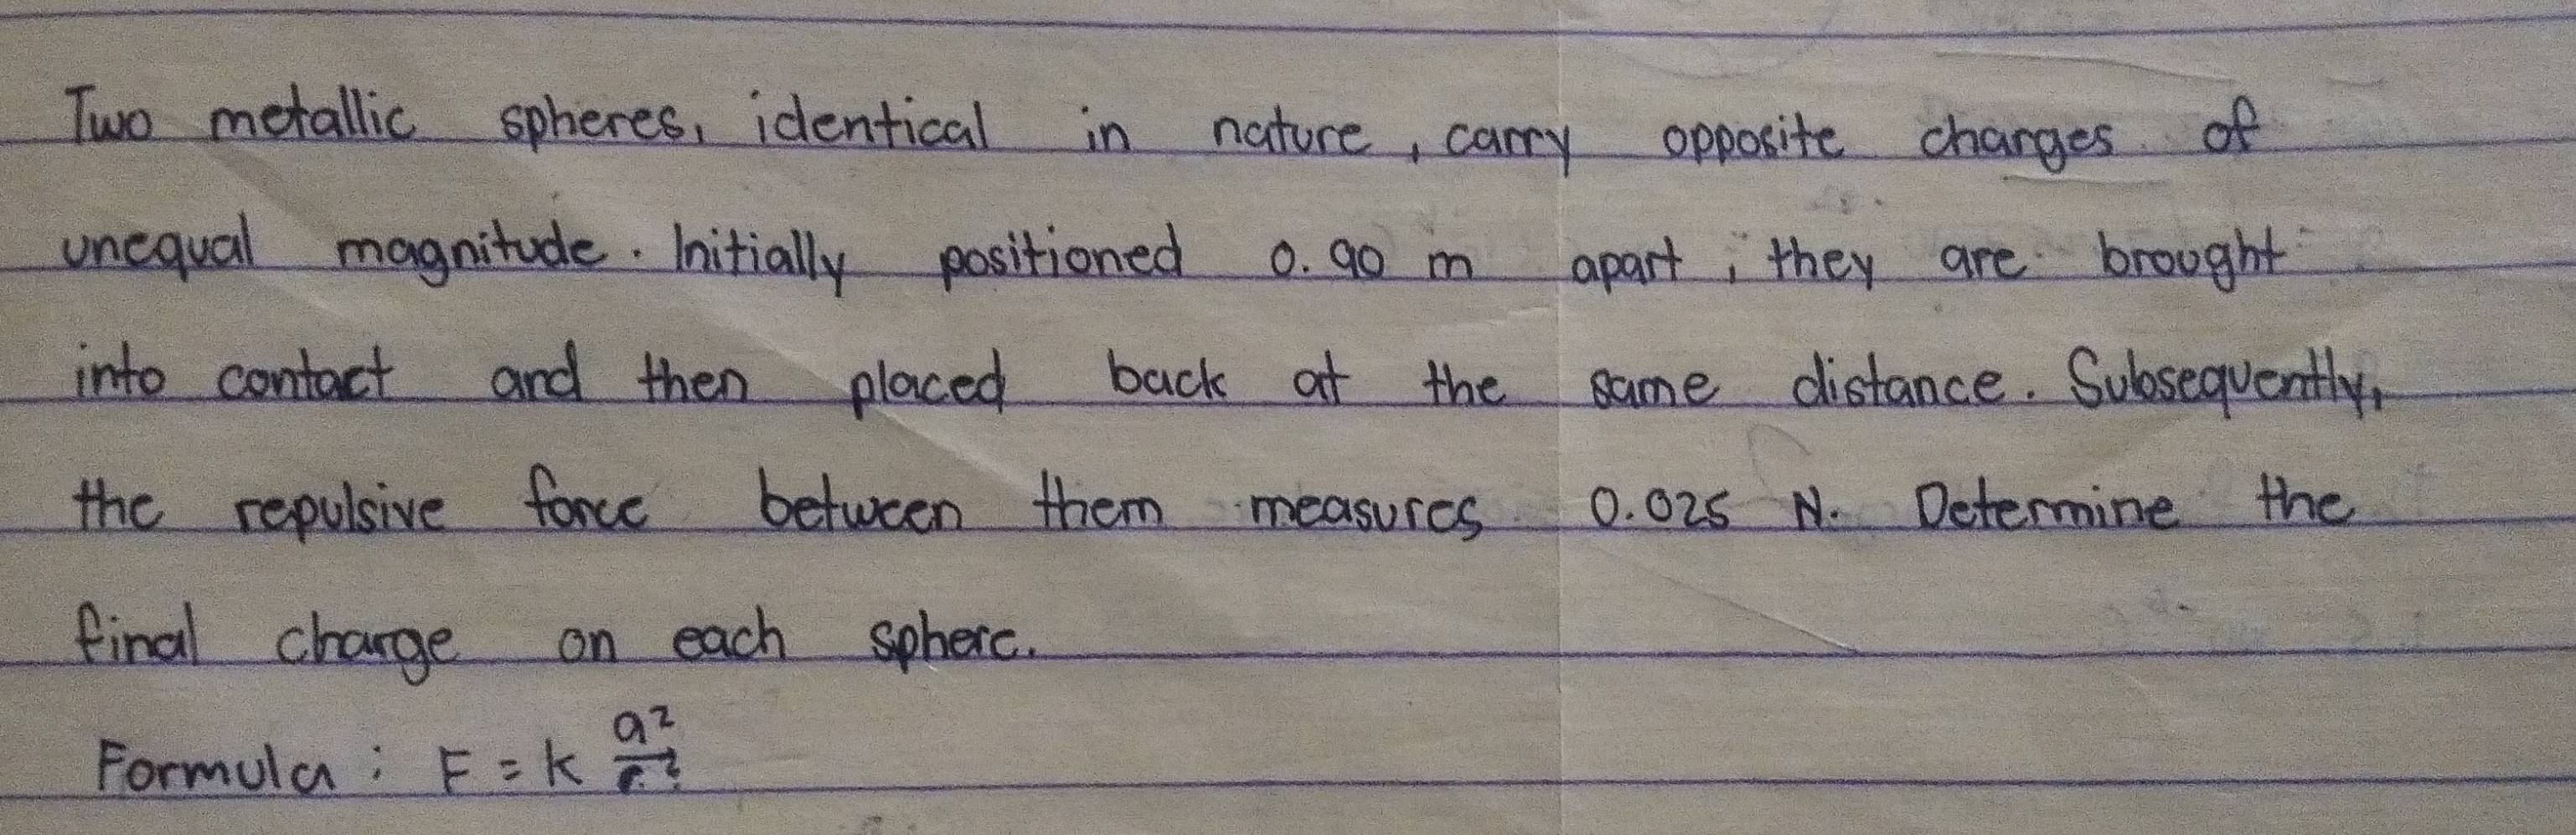 Two metallic spheres, identical in nature, carry opposite charges of
unequal magnitude. Initially positioned 0.90 m apart, they are brought
into contact and then placed back at the same distance. Subsequently,
the repulsive force between them measures 0.025 N. Determine the
final charge on each sphere.
Formula : F = k q²/r²